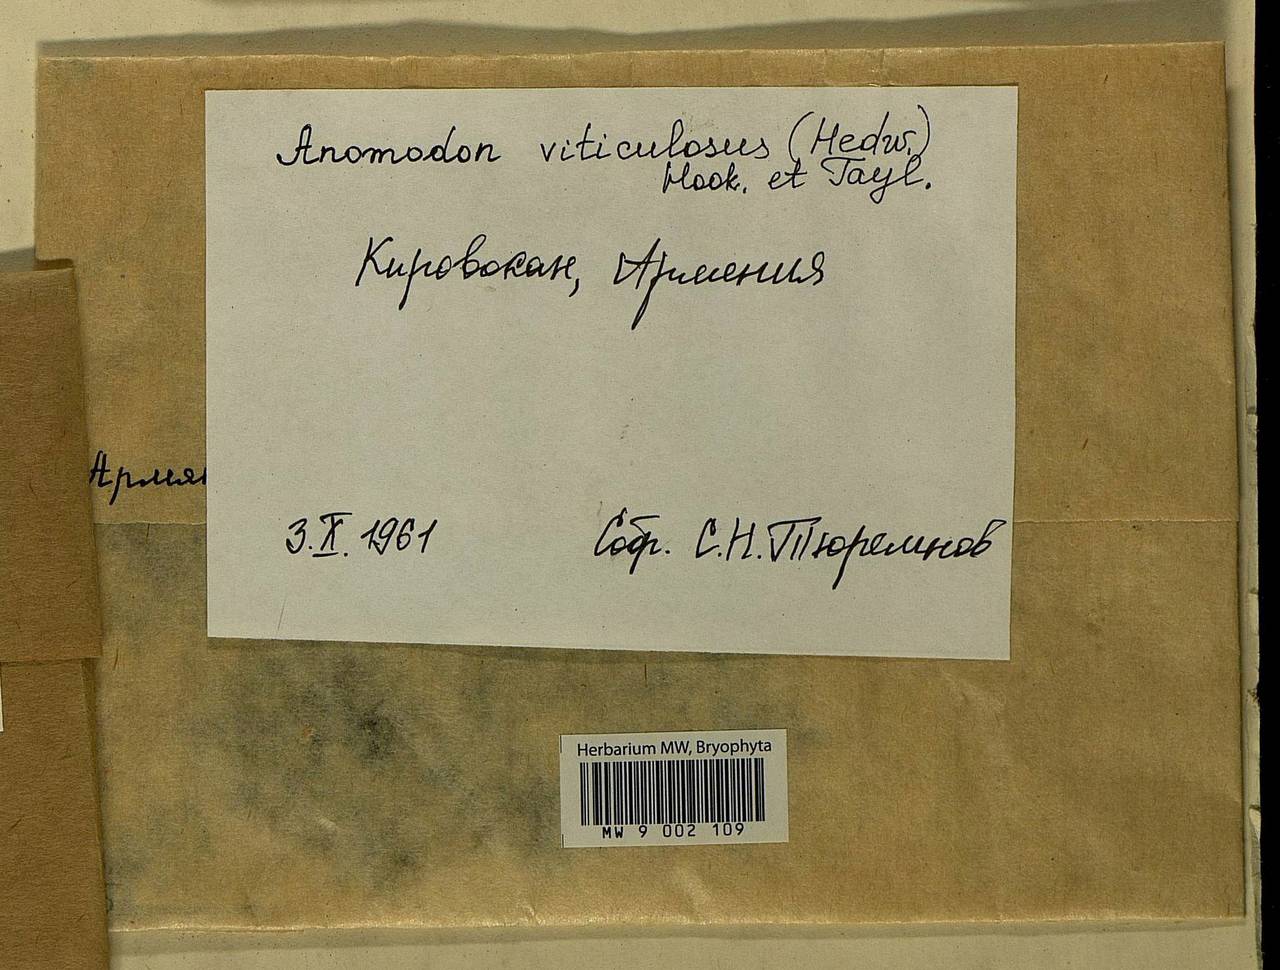 Anomodon viticulosus (Hedw.)
Hook. et Tayl.
Кировокан, Армения
Армян
3.X.1961 Собр. С.Н.Тюремнов
Herbarium MW, Bryophyta
MW 9 002 109